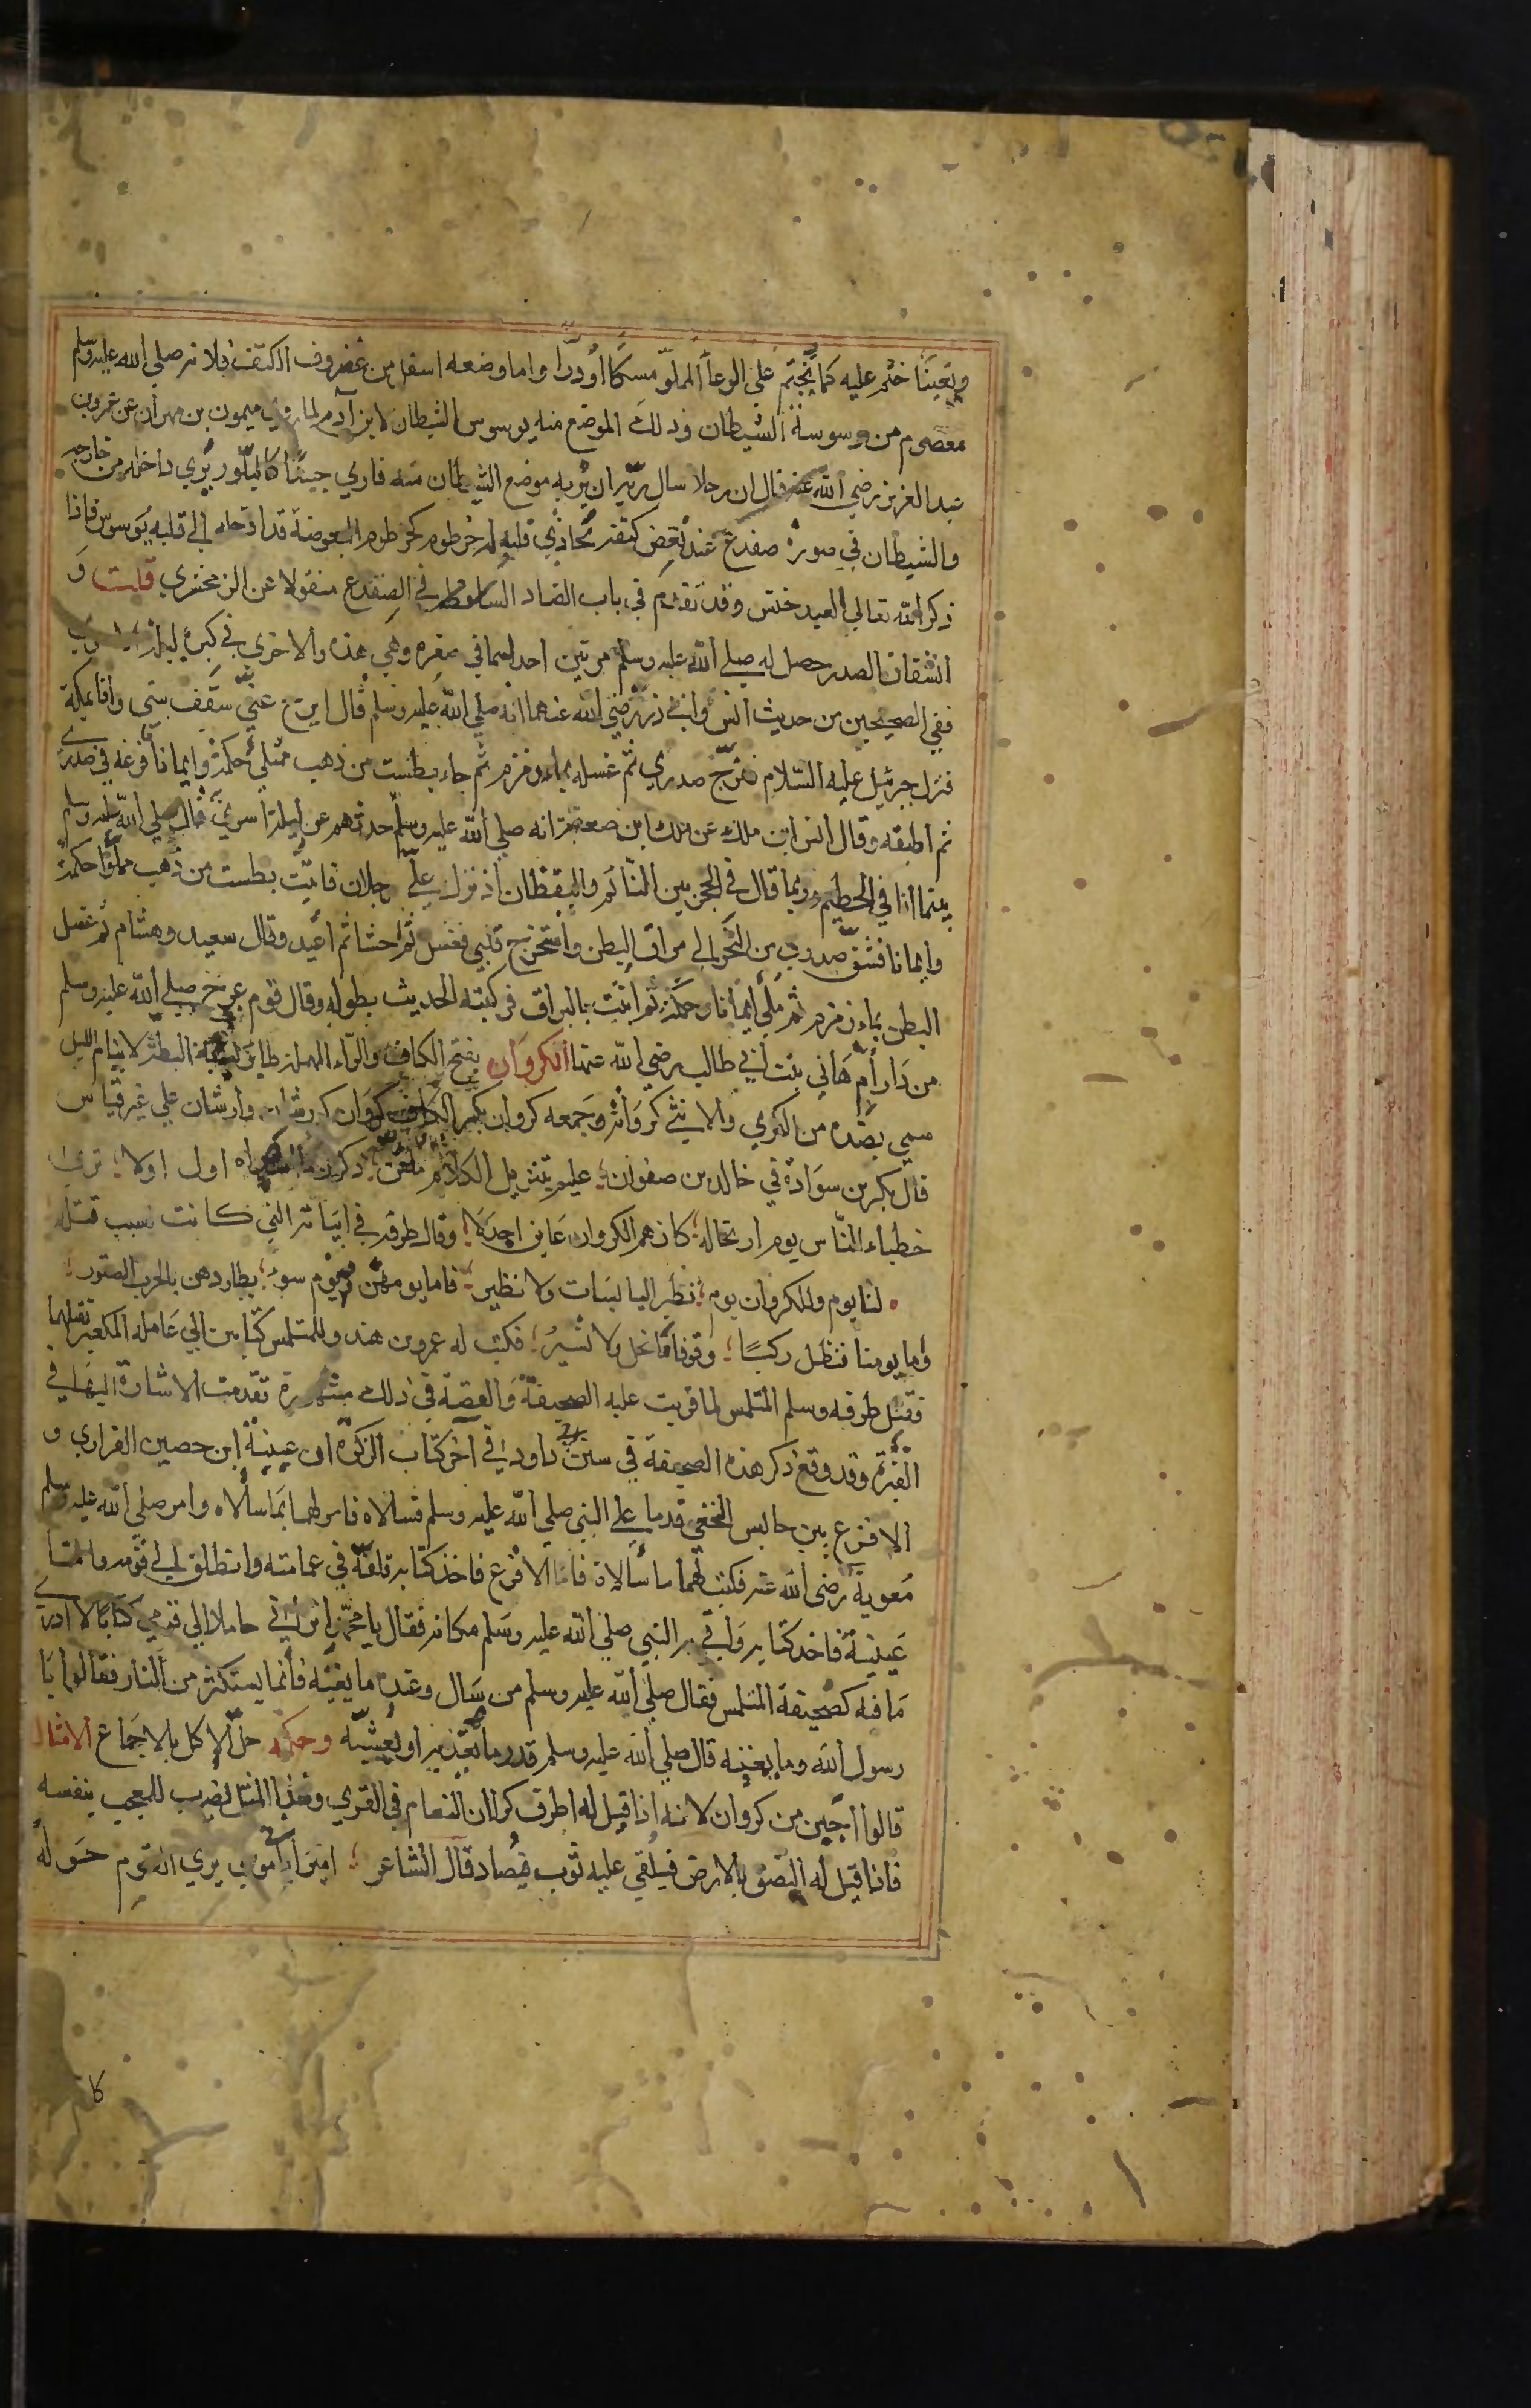 ويقينًا ختم عليه كما يختم علي الوعاً المملوّ مسكًا أو درّا واما وضعه اسفل من غضروف الكتف فلانه صلي الله عليه وسلم
معصوم من وسوسة الشيطان وذلك الموضع منه يوسوس الشيطان لابن آدم لما روي ميمون بن مهران عن عمر بن
عبد العزيز رضي الله عنه قال ان رجلا سال ربّه ان يُريه موضع الشيطان منه فاري جسدًا كالبلّور يُري داخله من خارجه
والشيطان في صورة ضفدع عند نغض كتفه محاذي قلبه له خرطوم كخرطوم البعوضة قد ادخله إلي قلبه يوسوس فاذا
ذكر الله تعالي العبد خنس وقد تقدّم في باب الضاد في الضفدع منقولا عن الزمخشري قلت و
انشقاق الصدر حصل له صلي الله عليه وسلم مرتين احداهما في صغره وهي هذه والاخري في كبره ليلة
ففي الصحيحين من حديث انس وابي ذر رضي الله عنهما انه صلي الله عليه وسلم قال فرج عنّي سقف بيتي وانا بمكة
فنزل جبرئيل عليه السّلام ففرّج صدري ثم غسله بماء زمزم ثم جاء بطست من ذهب ممتلئ حكمة وايمانا فافرغه في صدري
ثم اطبقه وقال انس ابن ملك عن ملك ابن صعصعة انه صلي الله عليه وسلم حدثهم عن ليلة اسري قال صلي الله عليه وسلم
بينما انا في الحطيم وربما قال في الحجر بين النّائم واليقظان اذ نزل عليّ رجلان فاتيت بطست من ذهب مملوًّا حكمة
وايمانا فشقّ صدري من النحر الي مراق البطن واستخرج قلبي فغسل ثم حشا ثم أعيد وقال سعيد وهشام ثم غسل
البطن بماء زمزم ثم ملئ ايمانا وحكمة ثم اتيت بالبراق فركبته الحديث بطوله وقال قوم عرج صلي الله عليه وسلم
من دار أم هاني بنت أبي طالب رضي الله عنها الكروان بفتح الكاف والرّاء المهملة طاير البطة لا ينام الليل
سمي بضده من الكري والانثي كروانة وجمعه كروان بكسر الكاف كورشان وارشان علي غير قياس
قال بكر بن سوادة في خالد بن صفوان ؛ عليم بتنزيل الكلام ملقن ؛ ذكور اول اولا ؛ تري
خطباء النّاس يوم ارتجاله ؛ كانهم الكروان عاين اجدلا ؛ وقال طرفة في ابياته التي كانت سبب قتله
لنا يوم وللكروان يوم ؛ تطير اليابسات ولا نطير ؛ فاما يومهن فيوم سوء ؛ يطاردهن بالحرب الصقور ؛
وأما يومنا فنظل ركبًا ؛ وقوفا ما نحل ولا نسير ؛ فكتب له عمرو بن هند وللمتلمس كتابين الي عامله المكعبر بقتلهما
فقتل طرفه وسلم المتلمس لما قريت عليه الصحيفة والقصة في ذلك مشهورة تقدمت الاشارة اليها في
القبرة وقد وقع ذكر هذه الصحيفة في سنن ابي داود في آخر كتاب الزكوة ان عيينة ابن حصين الفزاري و
الاقرع بن حابس النخعي قدما علي النبي صلي الله عليه وسلم فسالاه فامر لهما بما سألاه وامر صلي الله عليه وسلم
مُعوية رضي الله عنه فكتب لهما ما سألاه فاما الاقرع فاخذ كتابه فلفّه في عمامته وانطلق إلي قومه وامّا
عيينة فاخذ كتابه وأتي به النبي صلي الله عليه وسلم مكانه فقال يا محمّد أتراني حاملا إلي قومي كتابًا لا أدري
ما فيه كصحيفة المتلمس فقال صلي الله عليه وسلم من سال وعنده ما يغنيه فانما يستكثر من النار فقالوا يا
رسول الله وما يغنيه قال صلي الله عليه وسلم قدر ما يغذيه او يعشيه وحكمه حل الاكل بالاجماع الامثال
قالوا أجبن من كروان لانه اذا قيل له اطرق كرا ان النعام في القري وهذا المثل يضرب للمعجب بنفسه
فاذا قيل له التصق بالارض فيلقي عليه ثوب فيُصاد قال الشاعر ؛ امير أبا موسي يري الناس حوله
كا